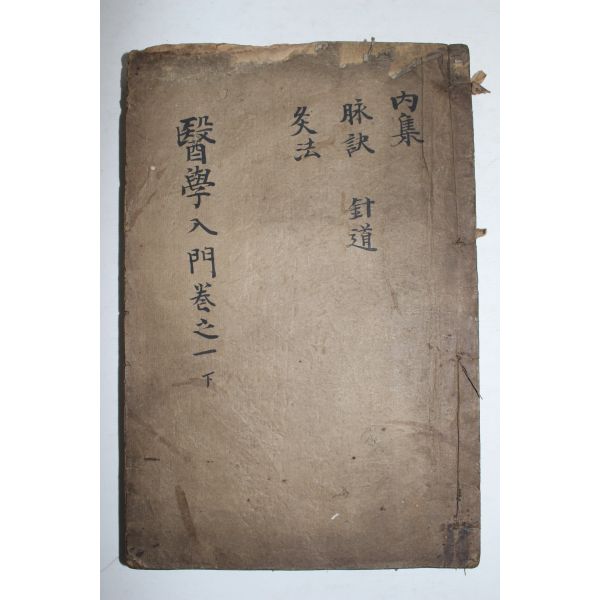 內集
脉訣 針道
灸法
醫學入門卷之一下